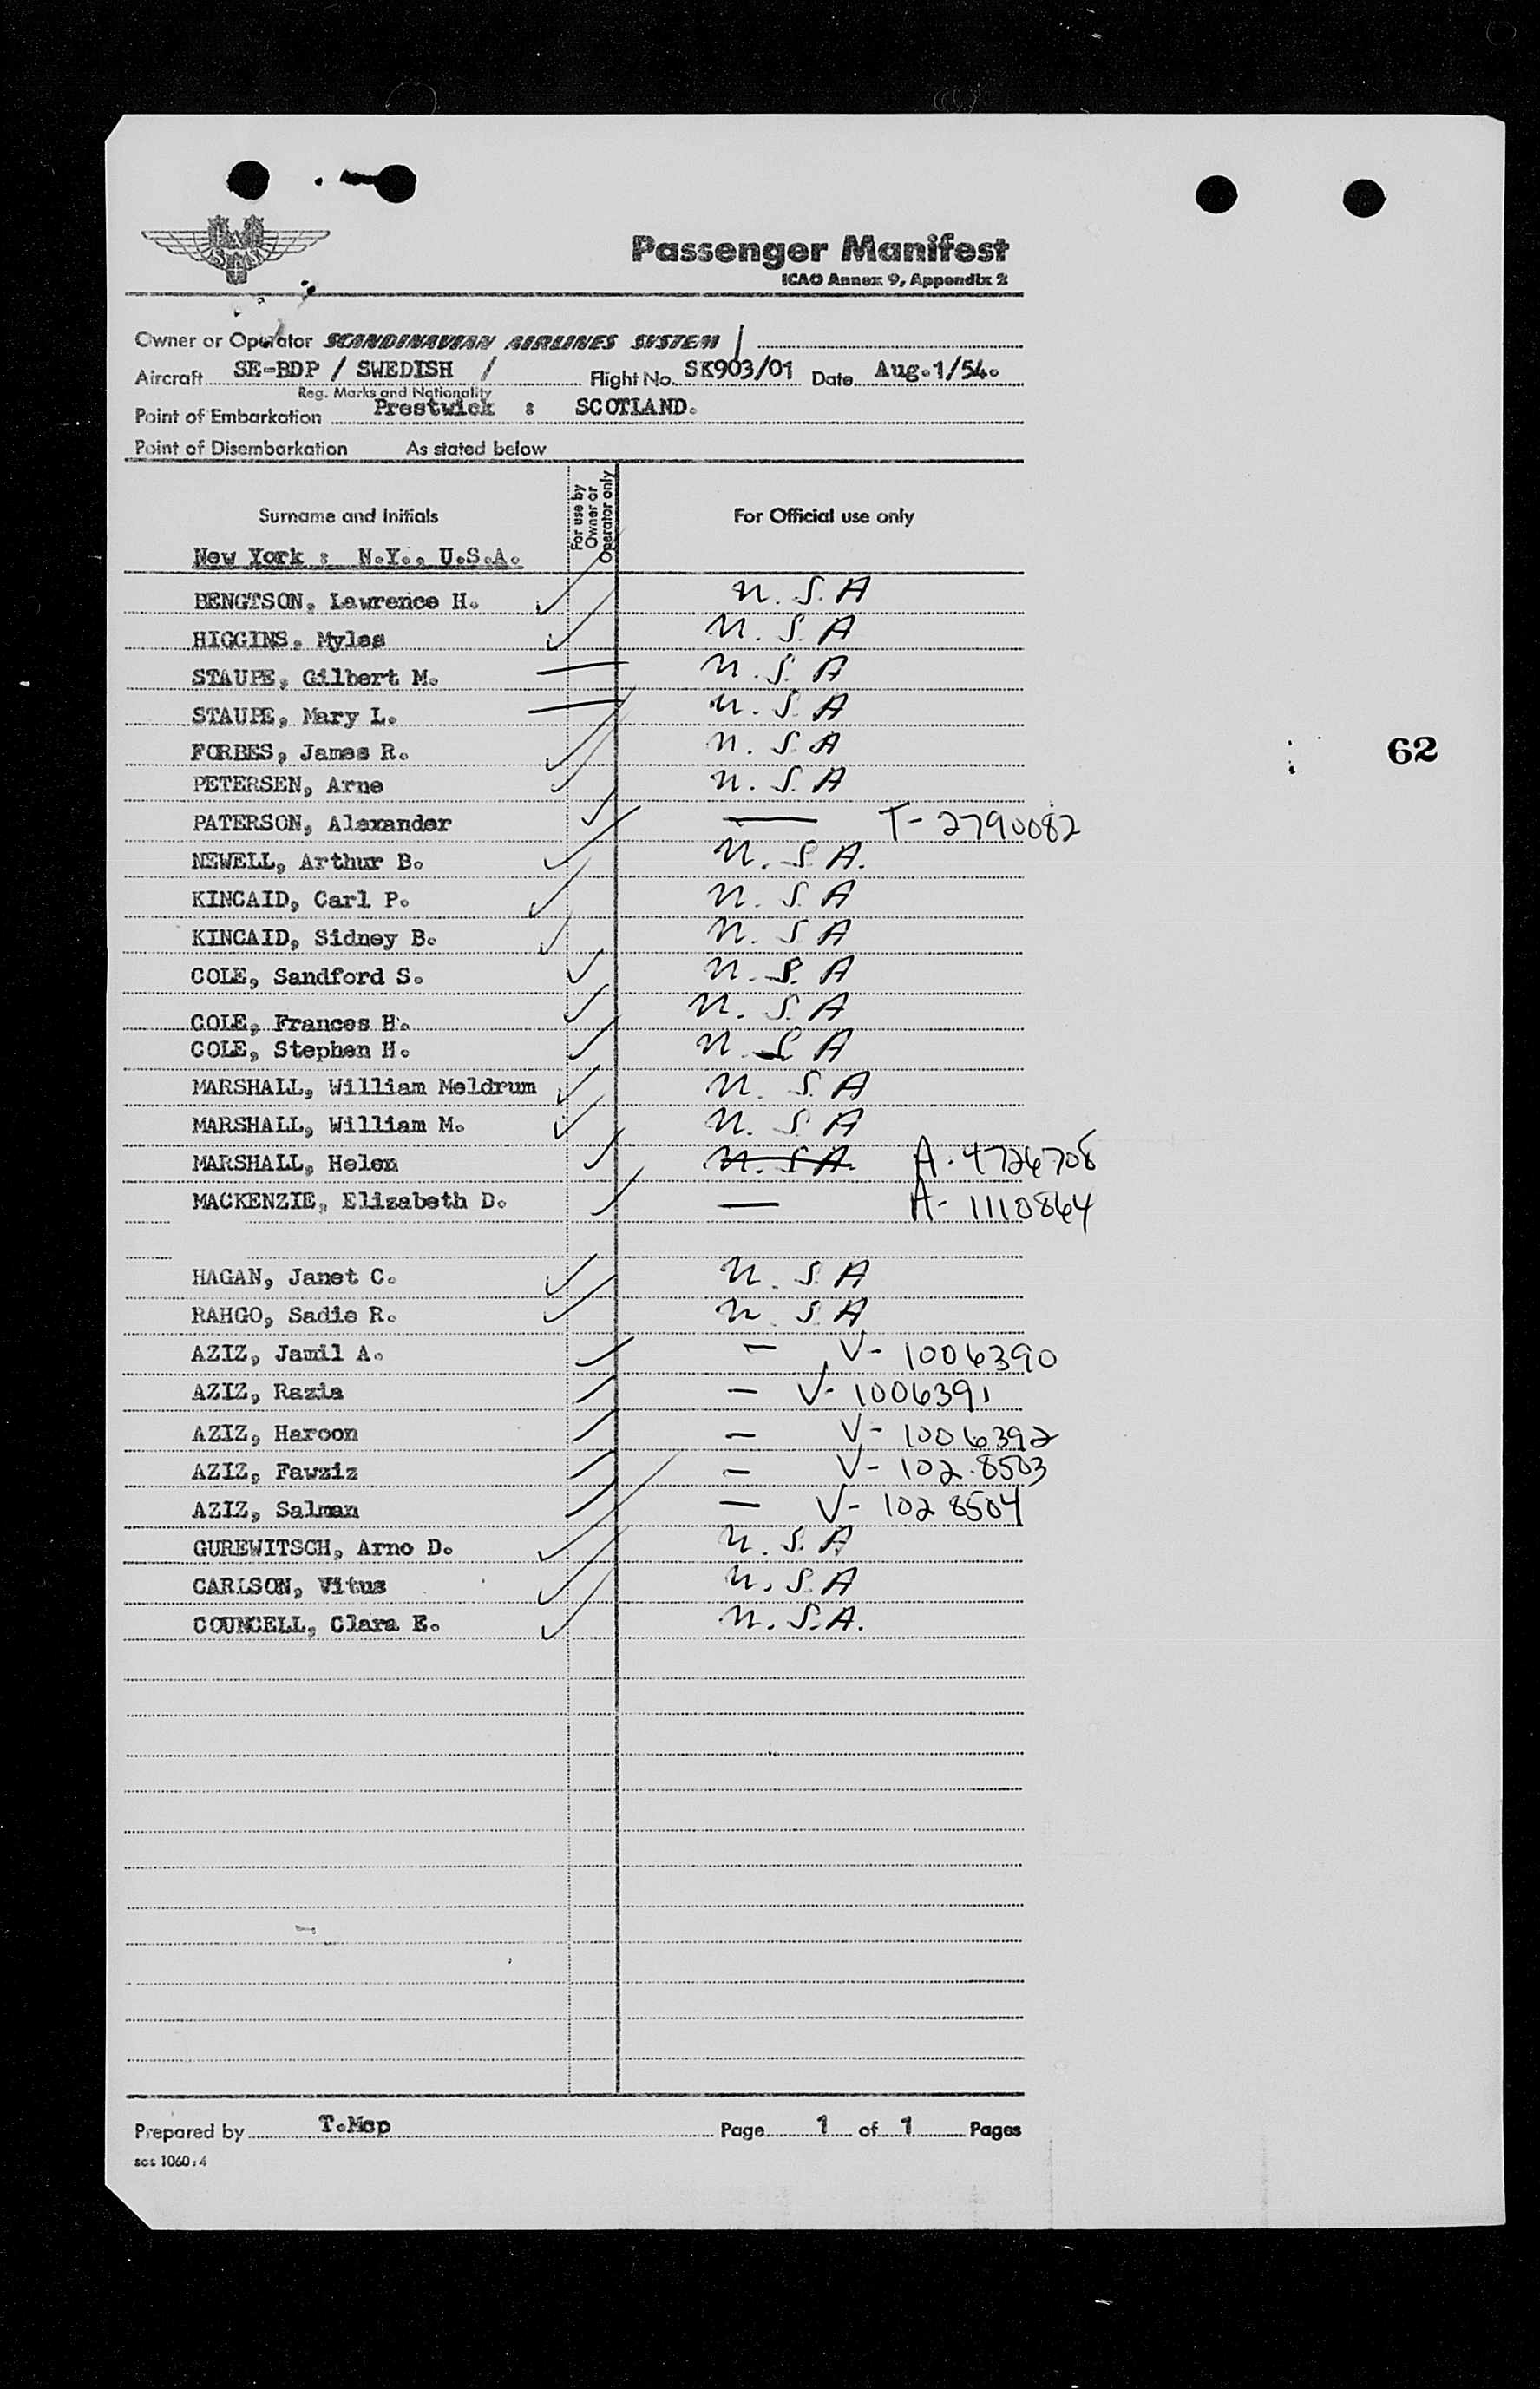 Passenger Manifest
ICAO Annex 9, Appendix 2
Owner or Operator SCANDINAVIAN AIRLINES SYSTEM
Aircraft SE-BDP / SWEDISH / Flight No. SK903/01 Date Aug.1/54.
Reg. Marks and Nationality
Point of Embarkation Prestwick : SCOTLAND.
Point of Disembarkation As stated below
Surname and Initials For use by Owner or Operator only For Official use only
New York : N.Y., U.S.A.
BENGTSON, Lawrence H. U.S.A
HIGGINS, Myles U.S.A
STAUPE, Gilbert M. U.S.A
STAUPE, Mary L. U.S.A
FORBES, James R. U.S.A
PETERSEN, Arne U.S.A
62
PATERSON, Alexander — T-2790082
NEWELL, Arthur B. U.S.A.
KINCAID, Carl P. U.S.A
KINCAID, Sidney B. U.S.A
COLE, Sandford S. U.S.A
COLE, Frances H. U.S.A
COLE, Stephen H. U.S.A
MARSHALL, William Meldrum U.S.A
MARSHALL, William M. U.S.A
MARSHALL, Helen U.S.A. A-4726708
MACKENZIE, Elizabeth D. — A-1110864
HAGAN, Janet C. U.S.A
RAHGO, Sadie R. U.S.A
AZIZ, Jamil A. — V-1006390
AZIZ, Razia — V-1006391
AZIZ, Haroon — V-1006392
AZIZ, Fawziz — V-102.8503
AZIZ, Salman — V-1028504
GUREWITSCH, Arno D. U.S.A
CARLSON, Vitus U.S.A
COUNCELL, Clara E. U.S.A.
Prepared by T.Mcp Page 1 of 1 Pages
sas 1060:4